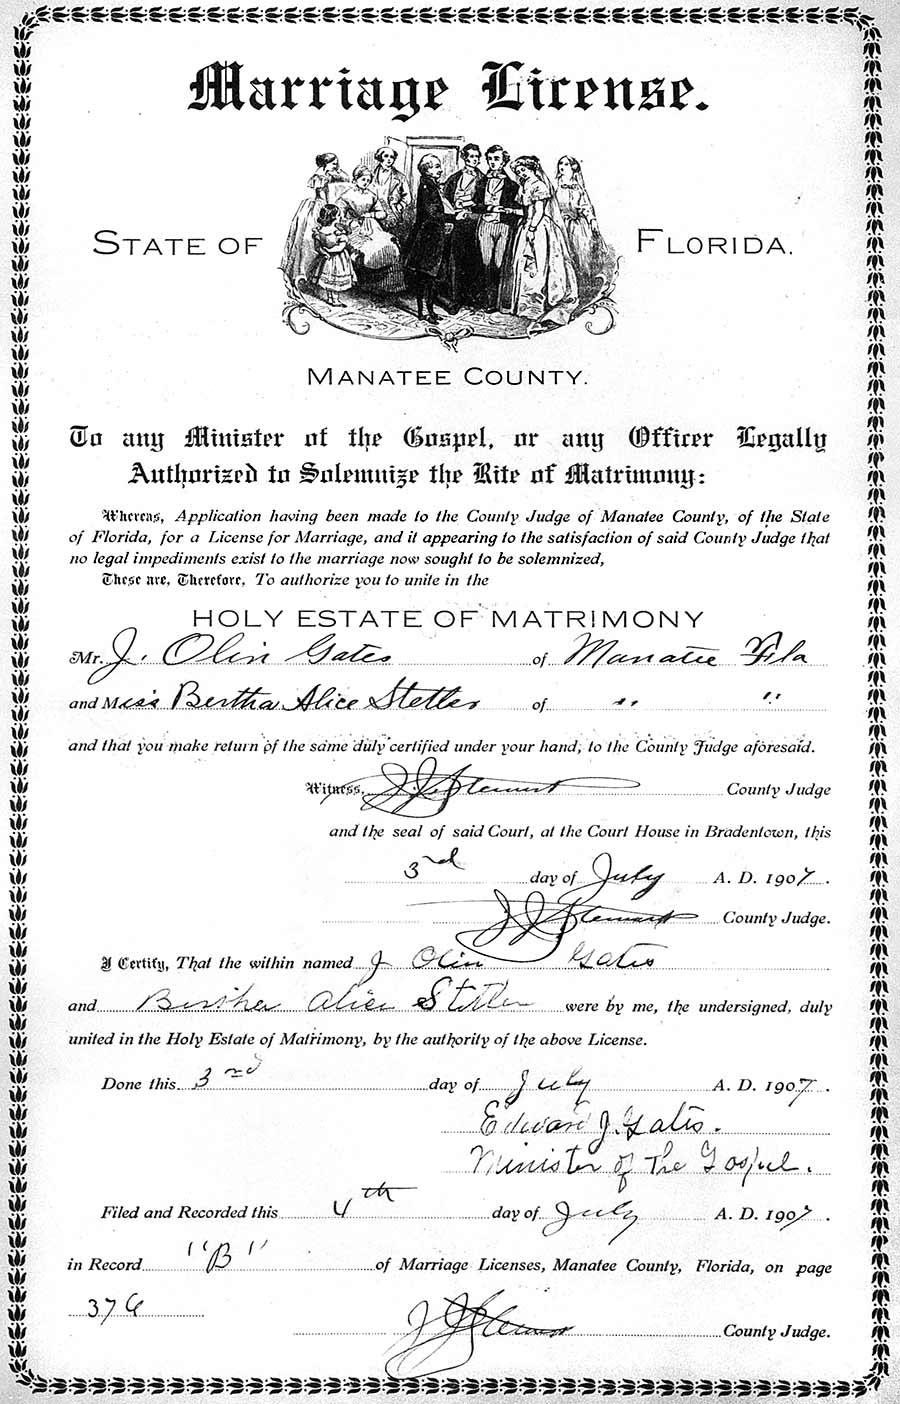 Marriage License.
STATE OF FLORIDA.
MANATEE COUNTY.
To any Minister of the Gospel, or any Officer Legally
Authorized to Solemnize the Rite of Matrimony:
Whereas, Application having been made to the County Judge of Manatee County, of the State
of Florida, for a License for Marriage, and it appearing to the satisfaction of said County Judge that
no legal impediments exist to the marriage now sought to be solemnized,
These are, Therefore, To authorize you to unite in the
HOLY ESTATE OF MATRIMONY
Mr. J. Olin Gates of Manatee Fla
and Miss Bertha Alice Stetler of " "
and that you make return of the same duly certified under your hand, to the County Judge aforesaid.
Witness, J. J. Stewart County Judge
and the seal of said Court, at the Court House in Bradentown, this
3rd day of July A. D. 1907.
J J Stewart County Judge.
I Certify, That the within named J Olin Gates
and Bertha Alice Stetler were by me, the undersigned, duly
united in the Holy Estate of Matrimony, by the authority of the above License.
Done this 3nd day of July A. D. 1907.
Edward J. Gates.
Minister of The Gospel.
Filed and Recorded this 4th day of July A. D. 1907.
in Record "B" of Marriage Licenses, Manatee County, Florida, on page
376
J J Stewart County Judge.